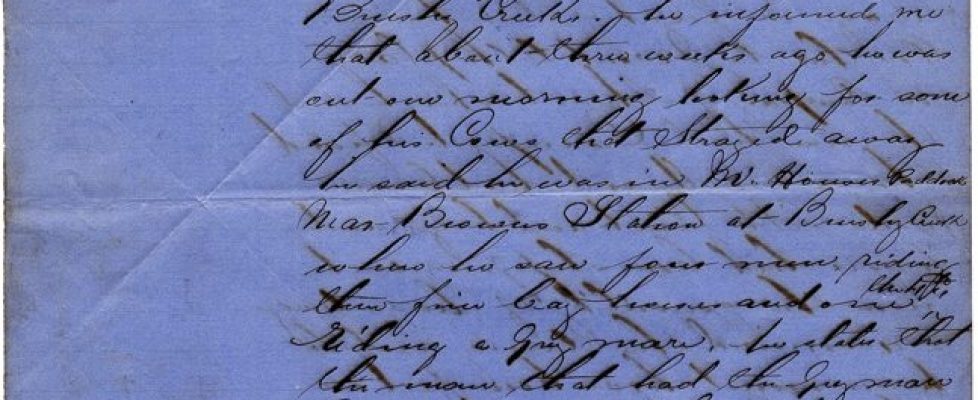 Brushy Creek. he informed me
that about three weeks ago he was
out one morning looking for some
of his Cows that Strazed away
he said he was in Mr. Houses Paddock
Near Browns Station at Brushy Creek
when he saw four men, riding
three fine bay horses and one
Riding a Grey mare, he states that
the man that had the Grey mare